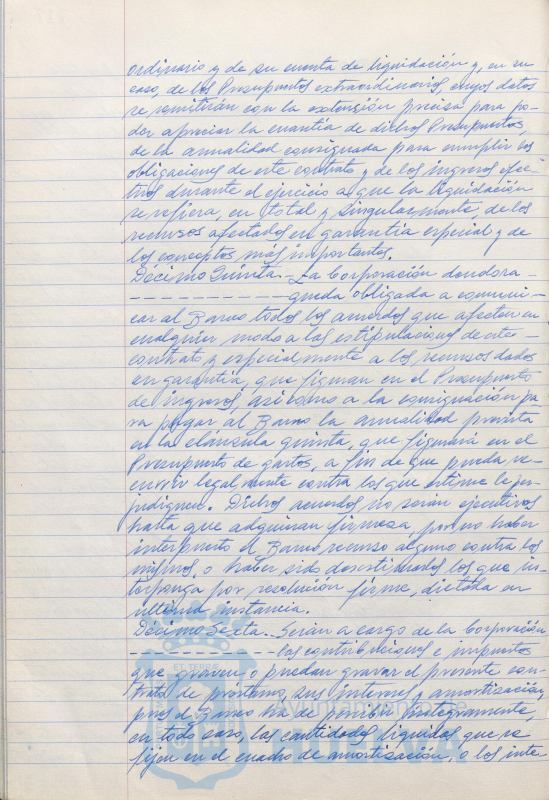 ordinario y de su cuenta de liquidación y, en su
caso, de los Presupuestos extraordinarios, cuyos datos
se remitirán con la extensión precisa para po-
der apreciar la cuantía de dichos Presupuestos,
de la anualidad consignada para cumplir las
obligaciones de este contrato y de los ingresos efec-
tivos durante el ejercicio a que la liquidación
se refiera, en total y singularmente, de los
recursos afectados en garantía especial y de
los conceptos más importantes.
Décimo Quinta.- La Corporación deudora -
- - - - - - - - - - - queda obligada a comuni-
car al Banco todos los acuerdos que afecten en
cualquier modo a las estipulaciones de este -
contrato y especialmente a los recursos dados
en garantía, que figuran en el Presupuesto
de ingresos, así como a la consignación pa
ra pagar al Banco la anualidad prevista
en la cláusula quinta, que figurará en el
Presupuesto de gastos, a fin de que pueda re-
currir legalmente contra los que estime le per-
judiquen. Dichos acuerdos no serán ejecutivos
hasta que adquieran firmeza, por no haber
interpuesto el Banco recurso alguno contra los
mismos, o haber sido desestimados los que in-
terponga por resolución firme, dictada en
última instancia.
Décimo Sexta.- Serán a cargo de la Corporación
- - - - - - - - - - - las contribuciones e impuestos
que graven o puedan gravar el presente con-
trato de préstamo, sus intereses y amortización,
pues el Banco ha de percibir íntegramente,
en todo caso, las cantidades líquidas que se
fijen en el cuadro de amortización, o los inter
Ayuntamiento de
HUELVA